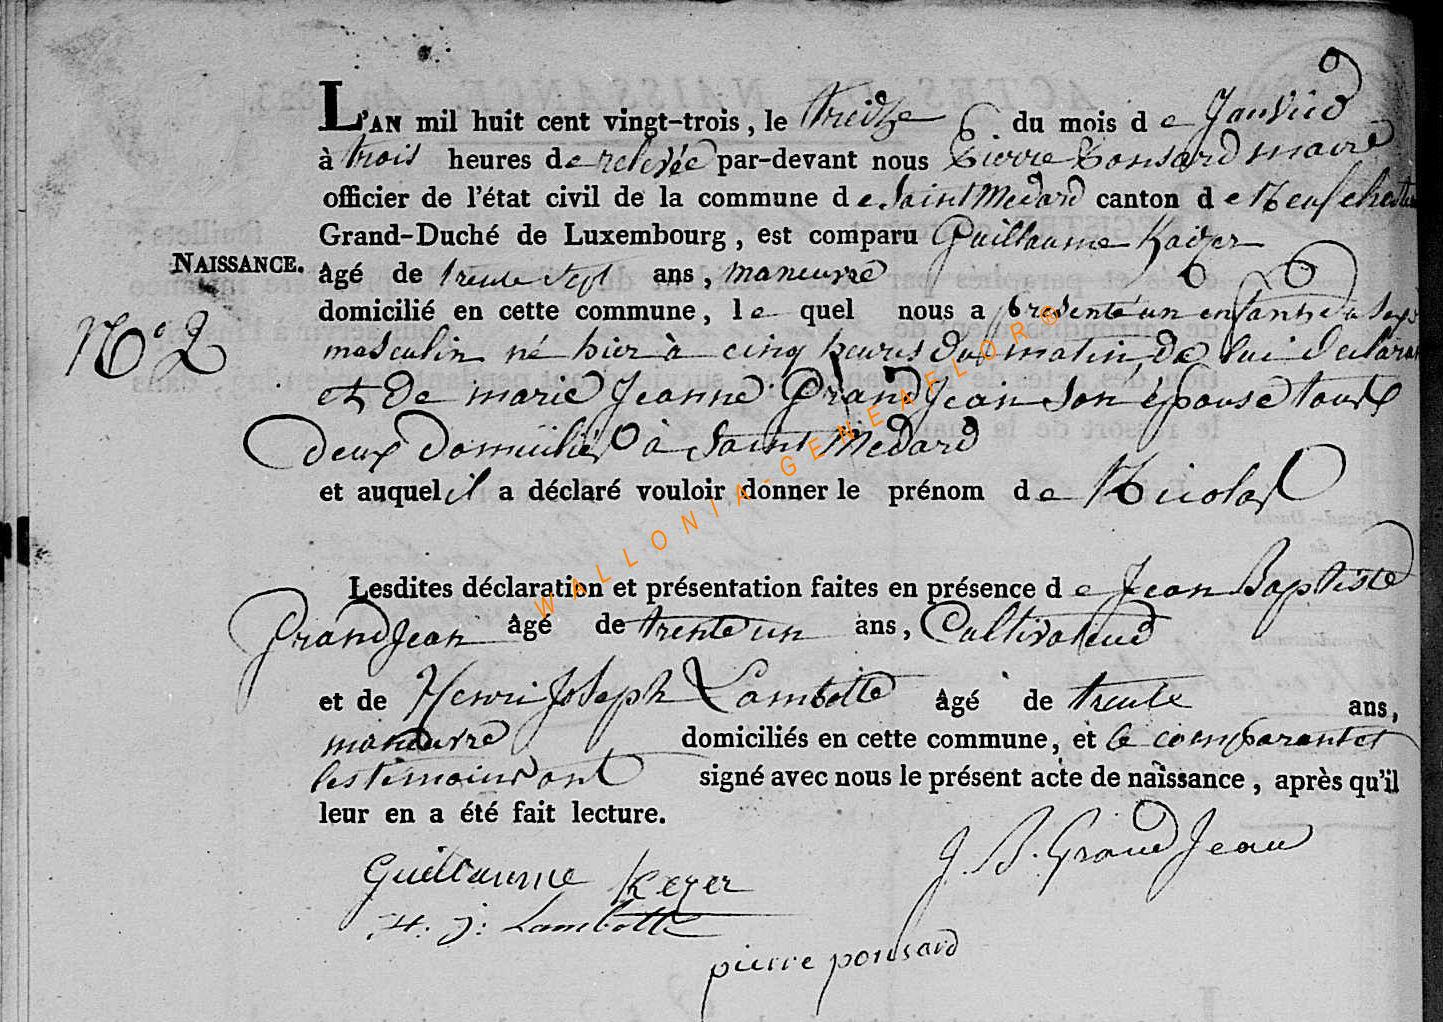 L'AN mil huit cent vingt-trois, le treidze du mois de Janvier
à trois heures de relevée par-devant nous Pierre Ponsard maire
officier de l'état civil de la commune de Saint Medard canton de Neufchateau
Grand-Duché de Luxembourg, est comparu Guillaume Kaizer
NAISSANCE. âgé de trente Sept ans, maneuvre
domicilié en cette commune, lequel nous a presenté un enfant du Sexe
N° 2 masculin né hier à cinq heures du matin de lui declarant
et de marie Jeanne Grand Jean Son épouse tous
deux domiciliés à Saint Medard
et auquel il a déclaré vouloir donner le prénom de Nicolas
Lesdites déclaration et présentation faites en présence de Jean Baptiste
Grand Jean âgé de trente un ans, Cultivateur
et de Henri Joseph Lambotte âgé de trente ans,
maneuvre domiciliés en cette commune, et le comparant et
les temoins ont signé avec nous le présent acte de naissance, après qu'il
leur en a été fait lecture.
Guillaume Keyer J. B. Grand Jean
H. J: Lambotte
pierre ponsard
WALLONIA-GENEAFLOR®